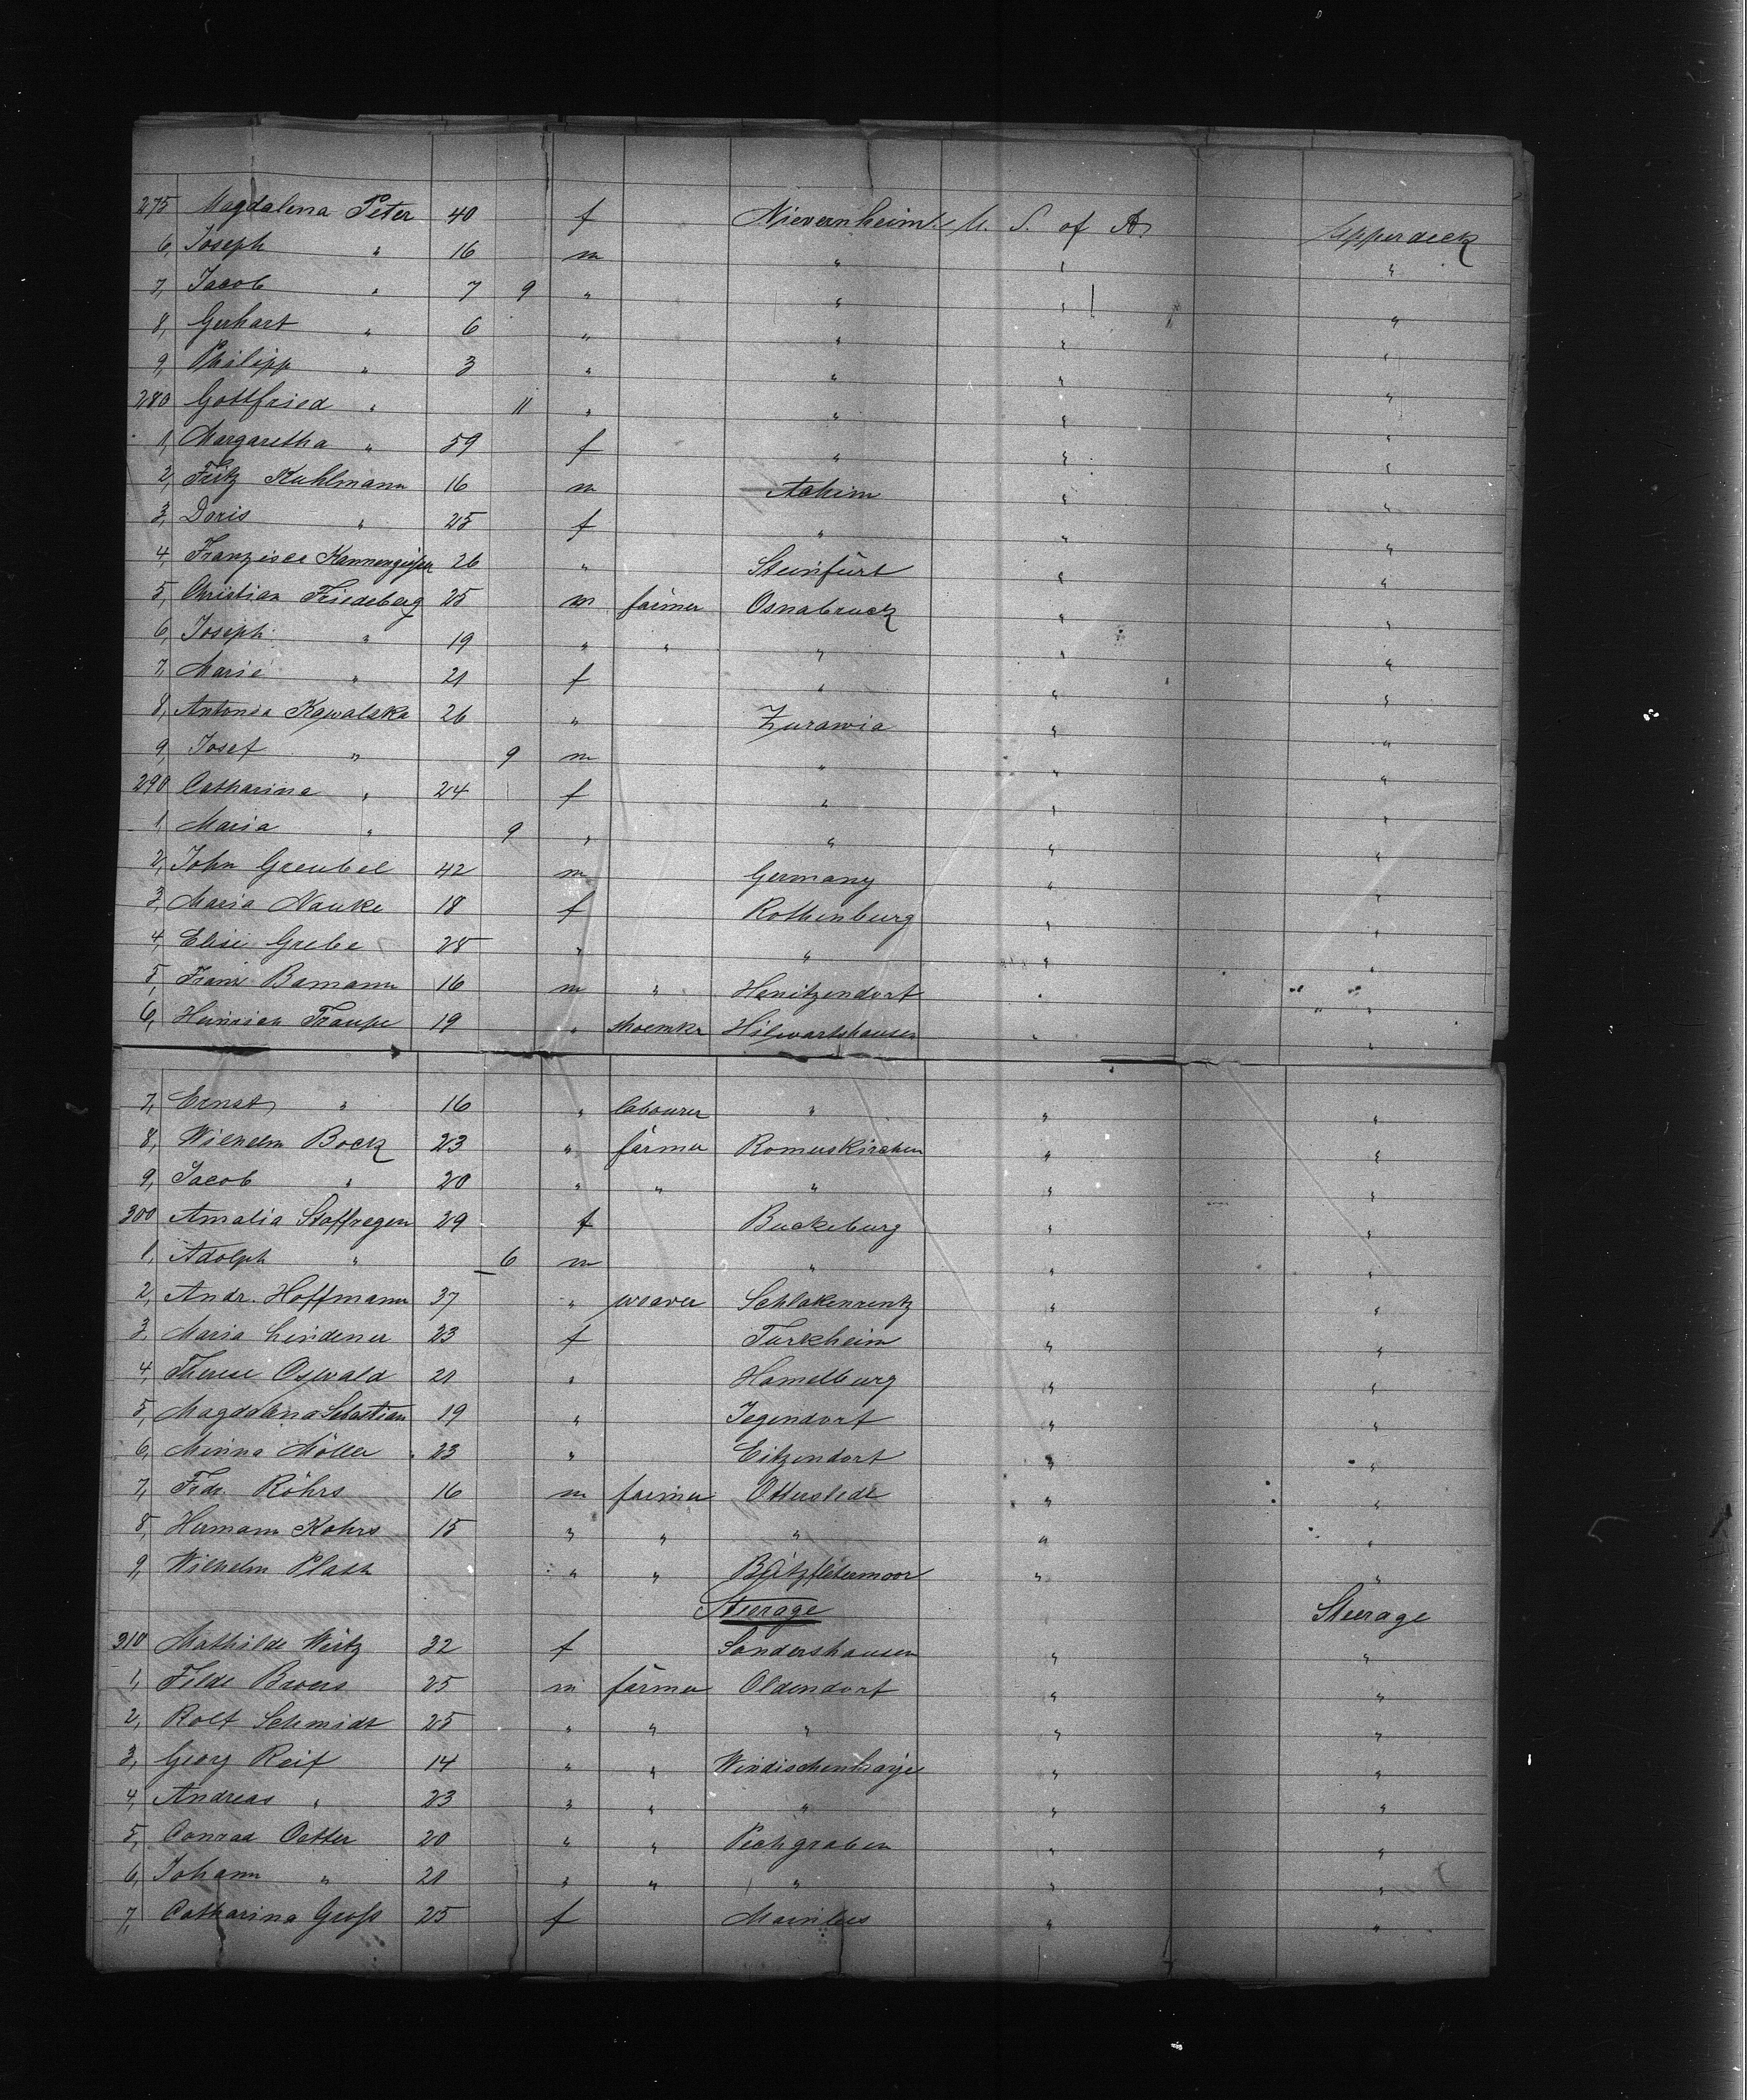 275 Magdalena Peter 40 f Nievernheim U. S. of A. Upperdeck
6, Joseph " 16 m " " "
7, Jacob " 7 9 " " " "
8, Gerhart " 6 " " " "
9, Philipp " 3 " " " "
280 Gottfried " 11 " " " "
1, Margaretha " 59 f " " "
2, Fritz Kuhlmann 16 m Achim " "
3, Doris " 25 f " " "
4, Franzisca Kannengießer 26 " Steinfürt " "
5, Christian Friedeberg 25 m farmer Osnabruck " "
6, Joseph " 19 " " " " "
7, Marie " 21 f " " "
8, Antonia Kawalska 26 " Zurawia " "
9, Josef " 9 m " " "
290 Catharina " 24 f " " "
1, Maria " 9 " " " "
2, John Greubel 42 m Germany " "
3, Maria Nauke 18 f Rothenburg " "
4, Elise Grebe 28 " " " "
5, Franz Bamann 16 m " Henitzendorf " "
6, Heinrich Traupe 19 " shoemkr Hilwartshausen " "
7, Ernst " 16 " labourer " " "
8, Wilhelm Bock 23 " farmer Romerskirchen " "
9, Jacob " 20 " " " " "
300 Amalia Stoffregen 29 f Buckeburg " "
1, Adolph " 6 m " " "
2, Andr. Hoffmann 37 " weaver Schlakenreuth " "
3, Maria Lindener 23 f Turkheim " "
4, Therese Oswald 21 " Hamelburg " "
5, Magdalena Sebastian 19 " Jegendorf " "
6, Minna Möller 23 " Eitzendorf " "
7, Frdr. Röhrs 16 m farmer Otterstedt " "
8, Hermann Kohrs 15 " " " " "
9, Wilhelm Plath " " Bützflethermoor " "
Steerage " Steerage
310 Mathilde Weitz 32 f Sondershausen " "
1, Folde Broers 25 m farmer Oldendorf " "
2, Rolf Schmidt 25 " " " " "
3, Georg Reif 14 " " Windischenhaig " "
4, Andreas " 23 " " " " "
5, Conrad Oetter 20 " " Pechgraben " "
6, Johann " 21 " " " " "
7, Catharina Groß 25 f Mainleus " "